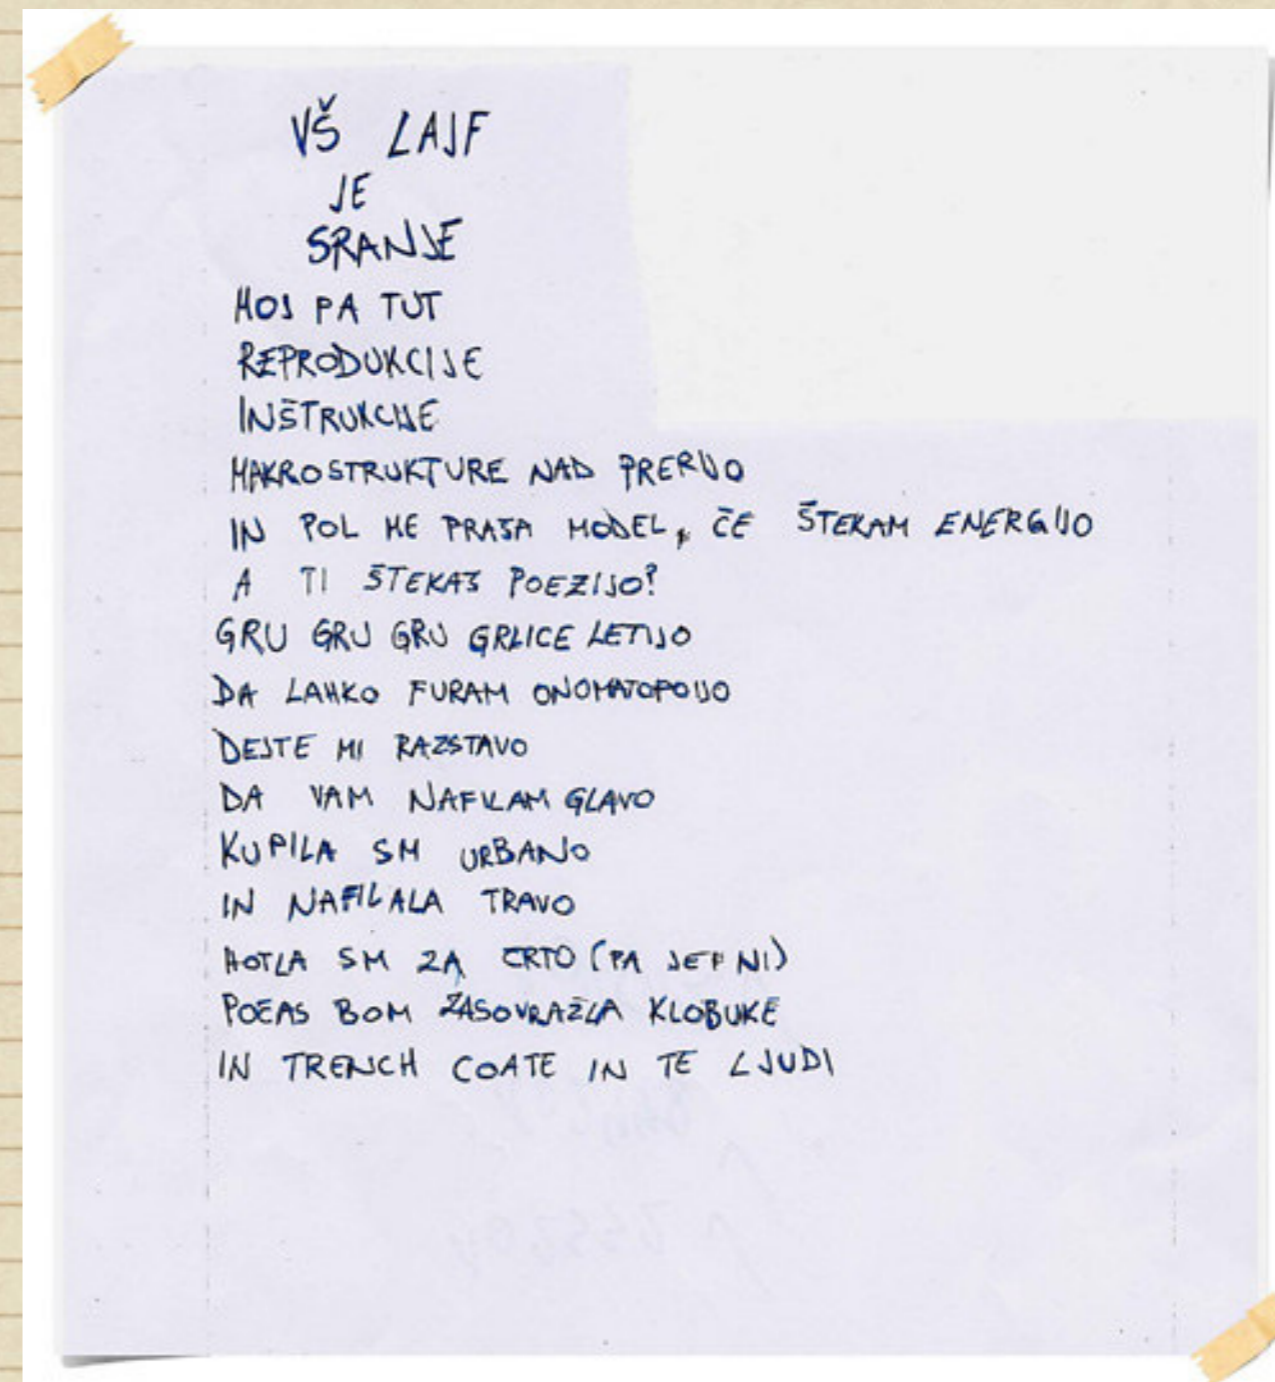 VŠ LAJF
JE
SRANJE
MOJ PA TUT
REPRODUKCIJE
INŠTRUKCIJE
MAKROSTRUKTURE NAD PRERIJO
IN POL ME PRAŠA MODEL, ČE ŠTEKAM ENERGIJO
A TI ŠTEKAŠ POEZIJO?
GRU GRU GRU GRLICE LETIJO
DA LAHKO FURAM ONOMATOPOIJO
DEJTE MI RAZSTAVO
DA VAM NAFILAM GLAVO
KUPILA SM URBANO
IN NAFILALA TRAVO
HOTLA SM ZA ČRTO (PA JEF NI)
POČAS BOM ZASOVRAŽLA KLOBUKE
IN TRENCH COATE IN TE LJUDI